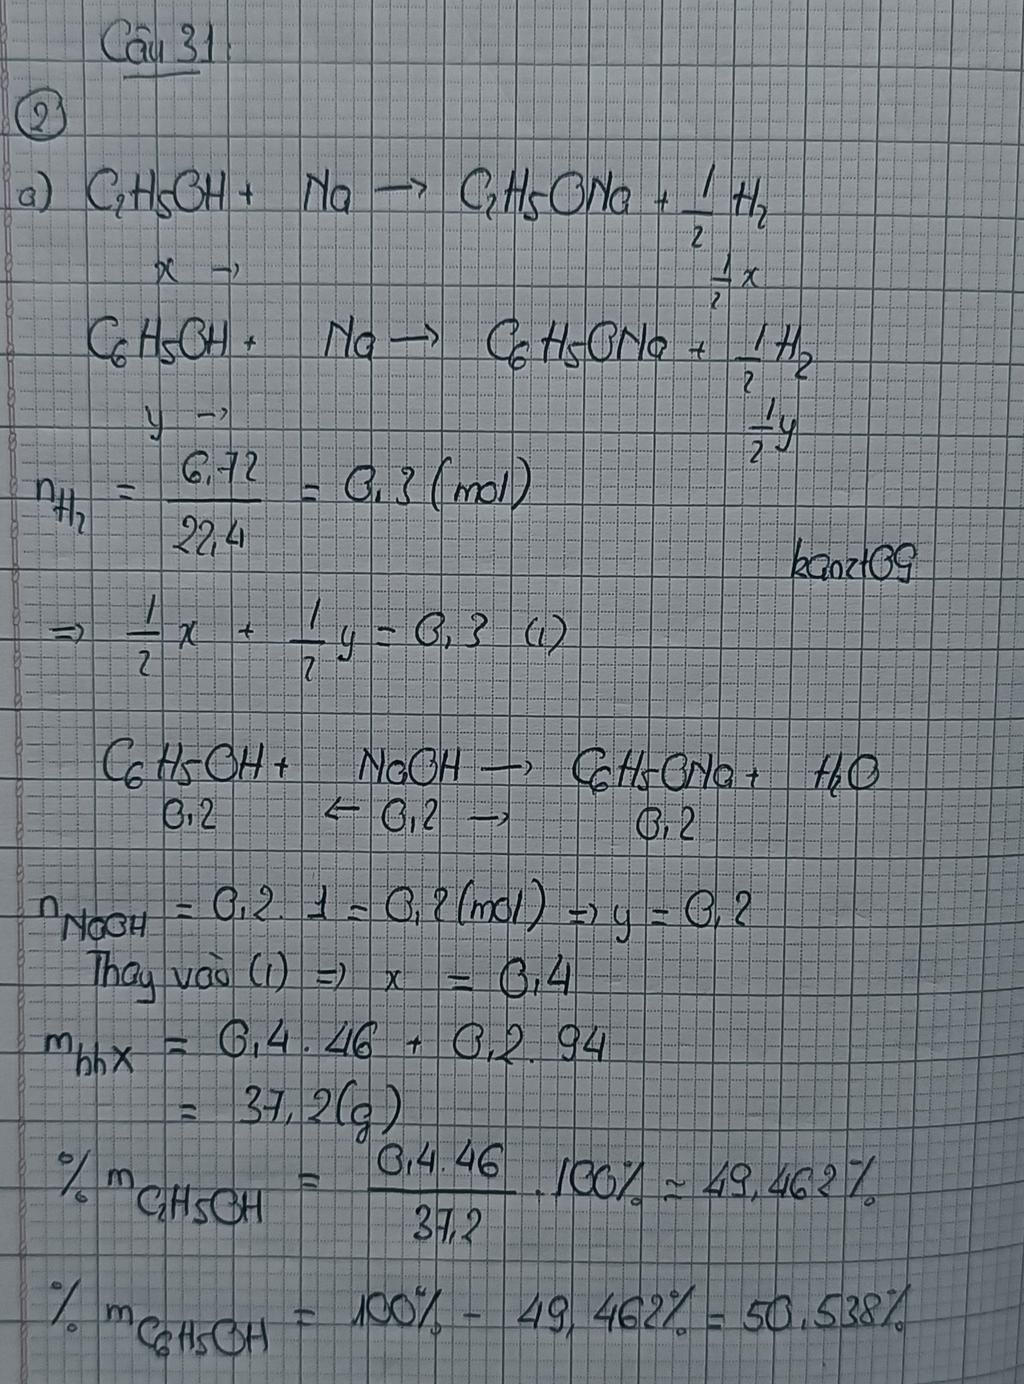 Câu 31:
②
a) C₂H5OH + Na → C₂H5ONa + 1/2 H₂
x → 1/2 x
C6H5OH + Na → C6H5ONa + 1/2 H₂
y → 1/2 y
nH₂ = 6,72/22,4 = 0,3 (mol)
kanzt09
=> 1/2 x + 1/2 y = 0,3 (1)
C6H5OH + NaOH → C6H5ONa + H₂O
0,2 ← 0,2 → 0,2
nNaOH = 0,2. 1 = 0,2 (mol) => y = 0,2
Thay vào (1) => x = 0,4
mhhX = 0,4 . 46 + 0,2. 94
= 37,2 (g)
% mC₂H5OH = 0,4.46/37,2 .100% = 49,462%
% mC6H5OH = 100% - 49,462% = 50,538%